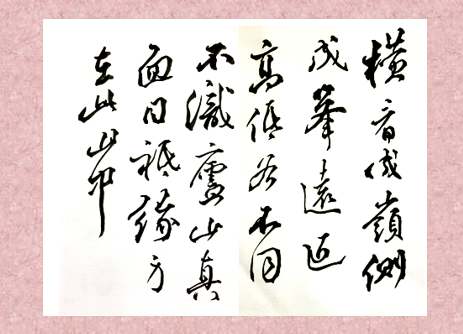 橫看成嶺側
成峯遠近
高低各不同
不識廬山真
面目祗緣身
在此山中